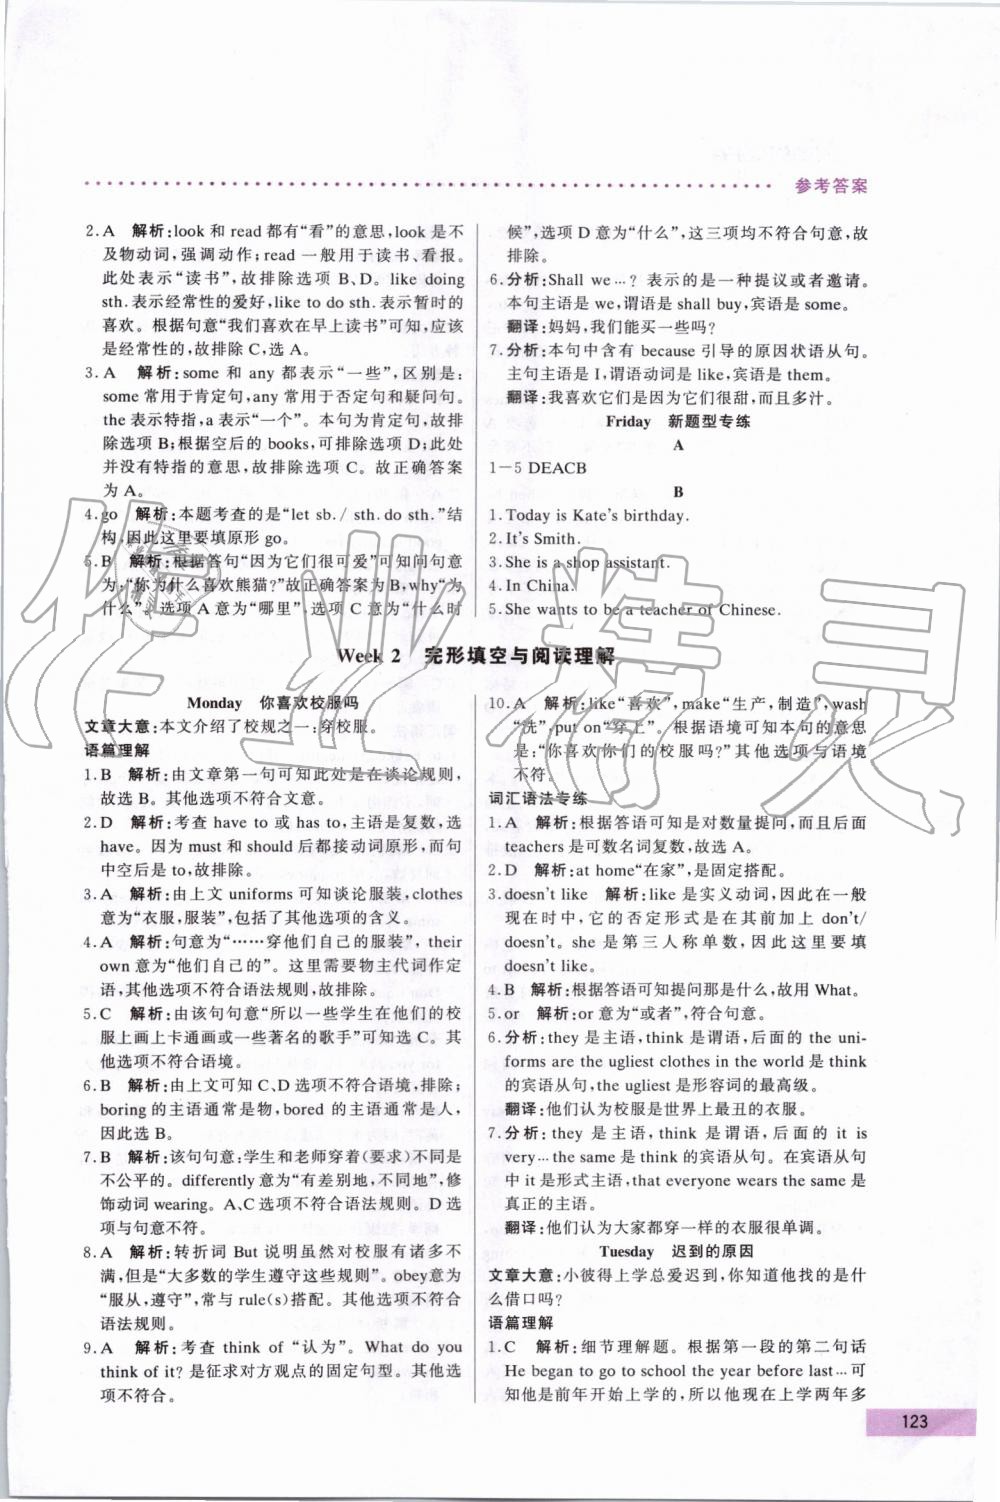 参考答案
2.A 解析:look 和 read 都有“看”的意思,look 是不
及物动词,强调动作;read 一般用于读书、看报。
此处表示“读书”,故排除选项 B、D。like doing
sth.表示经常性的爱好,like to do sth.表示暂时的
喜欢。根据句意“我们喜欢在早上读书”可知,应该
是经常性的,故排除 C,选 A。
3.A 解析:some 和 any 都表示“一些”,区别是:
some 常用于肯定句,any 常用于否定句和疑问句。
the 表示特指,a 表示“一个”。本句为肯定句,故排
除选项 B;根据空后的 books,可排除选项 D;此处
并没有特指的意思,故排除选项 C。故正确答案
为 A。
4.go 解析:本题考查的是“let sb./ sth. do sth.”结
构,因此这里要填原形 go。
5.B 解析:根据答句“因为它们很可爱”可知问句意
为:“你为什么喜欢熊猫?”故正确答案为 B,why“为
什么”。选项 A 意为“哪里”,选项 C 意为“什么时
候”,选项 D 意为“什么”,这三项均不符合句意,故
排除。
6.分析:Shall we…? 表示的是一种提议或者邀请。
本句主语是 we,谓语是 shall buy,宾语是 some。
翻译:妈妈,我们能买一些吗?
7.分析:本句中含有 because 引导的原因状语从句。
主句主语是 I,谓语动词是 like,宾语是 them。
翻译:我喜欢它们是因为它们很甜,而且多汁。
Friday 新题型专练
A
1－5 DEACB
B
1.Today is Kate's birthday.
2.It's Smith.
3.She is a shop assistant.
4.In China.
5.She wants to be a teacher of Chinese.
Week 2 完形填空与阅读理解
Monday 你喜欢校服吗
文章大意:本文介绍了校规之一:穿校服。
语篇理解
1.B 解析:由文章第一句可知此处是在谈论规则,
故选 B。其他选项不符合文意。
2.D 解析:考查 have to 或 has to,主语是复数,选
have。因为 must 和 should 后都接动词原形,而句
中空后是 to,故排除。
3.A 解析:由上文 uniforms 可知谈论服装,clothes
意为“衣服,服装”,包括了其他选项的含义。
4.A 解析:句意为“……穿他们自己的服装”,their
own 意为“他们自己的”。这里需要物主代词作定
语,其他选项不符合语法规则,故排除。
5.C 解析:由该句句意“所以一些学生在他们的校
服上画上卡通画或一些著名的歌手”可知选 C。其
他选项不符合语境。
6.B 解析:由上文可知 C、D 选项不符合语境,排除;
boring 的主语通常是物,bored 的主语通常是人,
因此选 B。
7.B 解析:该句句意:学生和老师穿着(要求)不同是
不公平的。differently 意为“有差别地,不同地”,修
饰动词 wearing。A、C 选项不符合语法规则。D 选
项与句意不符。
8.A 解析:转折词 But 说明虽然对校服有诸多不
满,但是“大多数的学生遵守这些规则”。obey意为
“服从,遵守”,常与 rule(s)搭配。其他选项不符合
语法规则。
9.A 解析:考查 think of“认为”。What do you
think of it? 是征求对方观点的固定句型。其他选
项不符合。
10.A 解析:like“喜欢”,make“生产,制造”,wash
“洗”,put on“穿上”。根据语境可知本句的意思
是:“你喜欢你们的校服吗?”其他选项与语境
不符。
词汇语法专练
1.A 解析:根据答语可知是对数量提问,而且后面
teachers 是可数名词复数,故选 A。
2.D 解析:at home“在家”,是固定搭配。
3.doesn't like 解析:like 是实义动词,因此在一般
现在时中,它的否定形式是在其前加上 don't/
doesn't。she 是第三人称单数,因此这里要填
doesn't like。
4.B 解析:根据答语可知提问那是什么,故用 What。
5.or 解析:or 意为“或者”,符合句意。
6.分析:they 是主语,think 是谓语,后面的 the uni-
forms are the ugliest clothes in the world 是 think
的宾语从句,the ugliest 是形容词的最高级。
翻译:他们认为校服是世界上最丑的衣服。
7.分析:they 是主语,think 是谓语,后面的 it is
very…the same 是 think 的宾语从句。在宾语从句
中 it 是形式主语,that everyone wears the same 是
真正的主语。
翻译:他们认为大家都穿一样的衣服很单调。
Tuesday 迟到的原因
文章大意:小彼得上学总爱迟到,你知道他找的是什
么借口吗?
语篇理解
1.C 解析:细节理解题。根据第一段的第二句话
He began to go to school the year before last…可
知他是前年开始上学的,所以他现在上学两年多
123
作业精灵